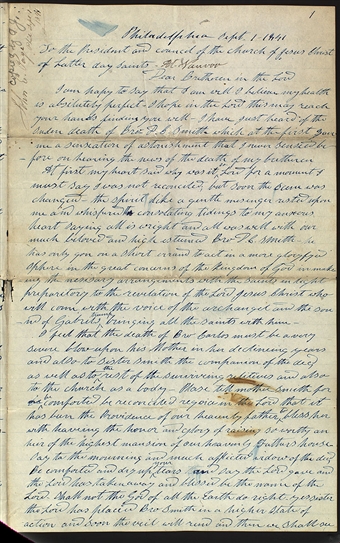 1
Philadelphia Sept. 1. 1841
To the President and council of the Church of Jesus Christ
of Latter day Saints - At Nauvoo
Dear Brethren in the Lord
I am happy to say that I am well I believe my health
is absolutely perfect - I hope in the Lord this may reach
your hands finding you well - I have just heard of the
Suden death of Bro D. C. Smith which at the first gave
me a sensation of astonishment that I never sensed be-
fore on hearing the news of the death of my brethren
At first my heart said why was it, Lord for a moment I
must say I was not reconciled, but soon the Scene was
changed - the spirit like a gentle messenger rested upon
me and whispered consolating tidings to my anxious
heart saying all is wright and all was well with our
much beloved and high esteemed Bro D. C. Smith - he
has only gon on a short errand to act in a more glorifyed
Sphere in the great concerns of the Kingdom of God in make
ing the necessary arrangements with the saints in light
preparitory to the revilation of the Lord Jesus Christ who
will come with the voice of the archangel and the soun
nd of Gabriels bringing all the saints with him -
I feel that the death of Bro Carlos must be a very
severe Stroke upon his Mother in her declineing years
and also to Sister Smith the companion of the dec'd
as well as to the rest of the surviveing relitives and also
to the church as a body - Please tell mother Smith for
to be comforted be reconciled rejoice in the Lord that it
has been the Providence of our heavenly father to bless her
with heaveing the honor and glory of raising so worthy an
heir of the highest mansion of our heavenly Fathers house
Say to the mourning and much afflicted widow of the dec'd
Be comforted and dry up your tears and say the Lord gave and
the Lord has taken away and blessed be the name of the
Lord. Shall not the God of all the Earth do right. yes sister
the Lord has placed Bro Smith in a higher State of
action and soon the veil will rend and then we shall see